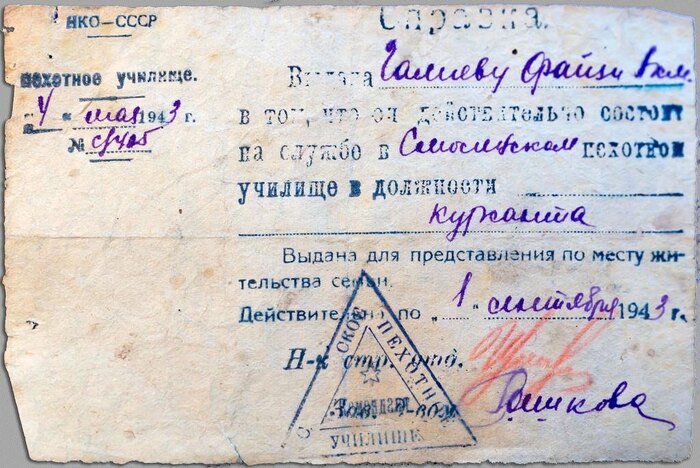 НКО—СССР
пехотное училище.
„4“ мая 1943 г.
№
Справка.
Выдана Галиеву Файзи
в том, что он действительно состоит
на службе в Смоленском пехотном
училище в должности
курсанта
Выдана для представления по месту жи-
тельства семьи.
Действительна по „1“ сентября 1943 г.
Н-к стр. отд.
Рашкова
СКОЕ ПЕХОТН
УЧИЛИЩЕ